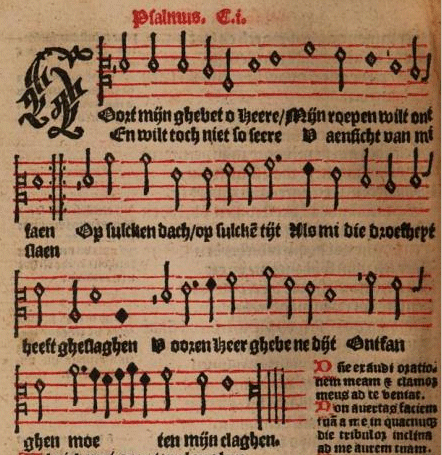 Psalmus. C.i.
HOort mijn ghebet o Heere/Mijn roepen wilt ont
En wilt toch niet so seere V aensicht van mi
faen Op sulcken dach/op sulckē tijt Als mi die droefheyt
slaen
heeft gheslaghen V ooren Heer ghebe ne dijt Ontfan
ghen moe ten mijn claghen.
Dñe exaudi oratio
nem meam & clamor
meus ad te veniat.
Non auertas faciem
tuā a me in quacunqʒ
die tribulor inclina
ad me aurem tuam.